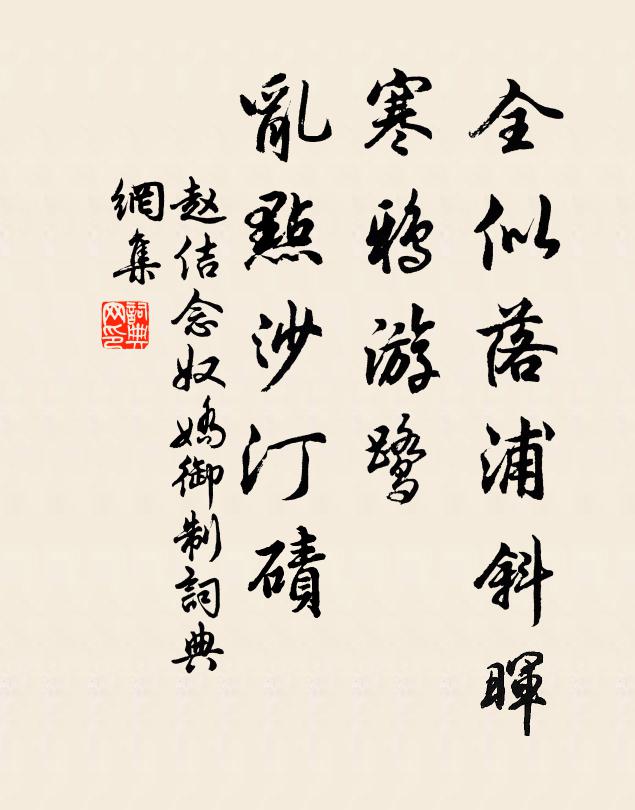 全似落浦斜暉
寒鴉游鷺
亂點沙汀磧
赵佶念奴嬌御制詞典
網集
詞典
网印